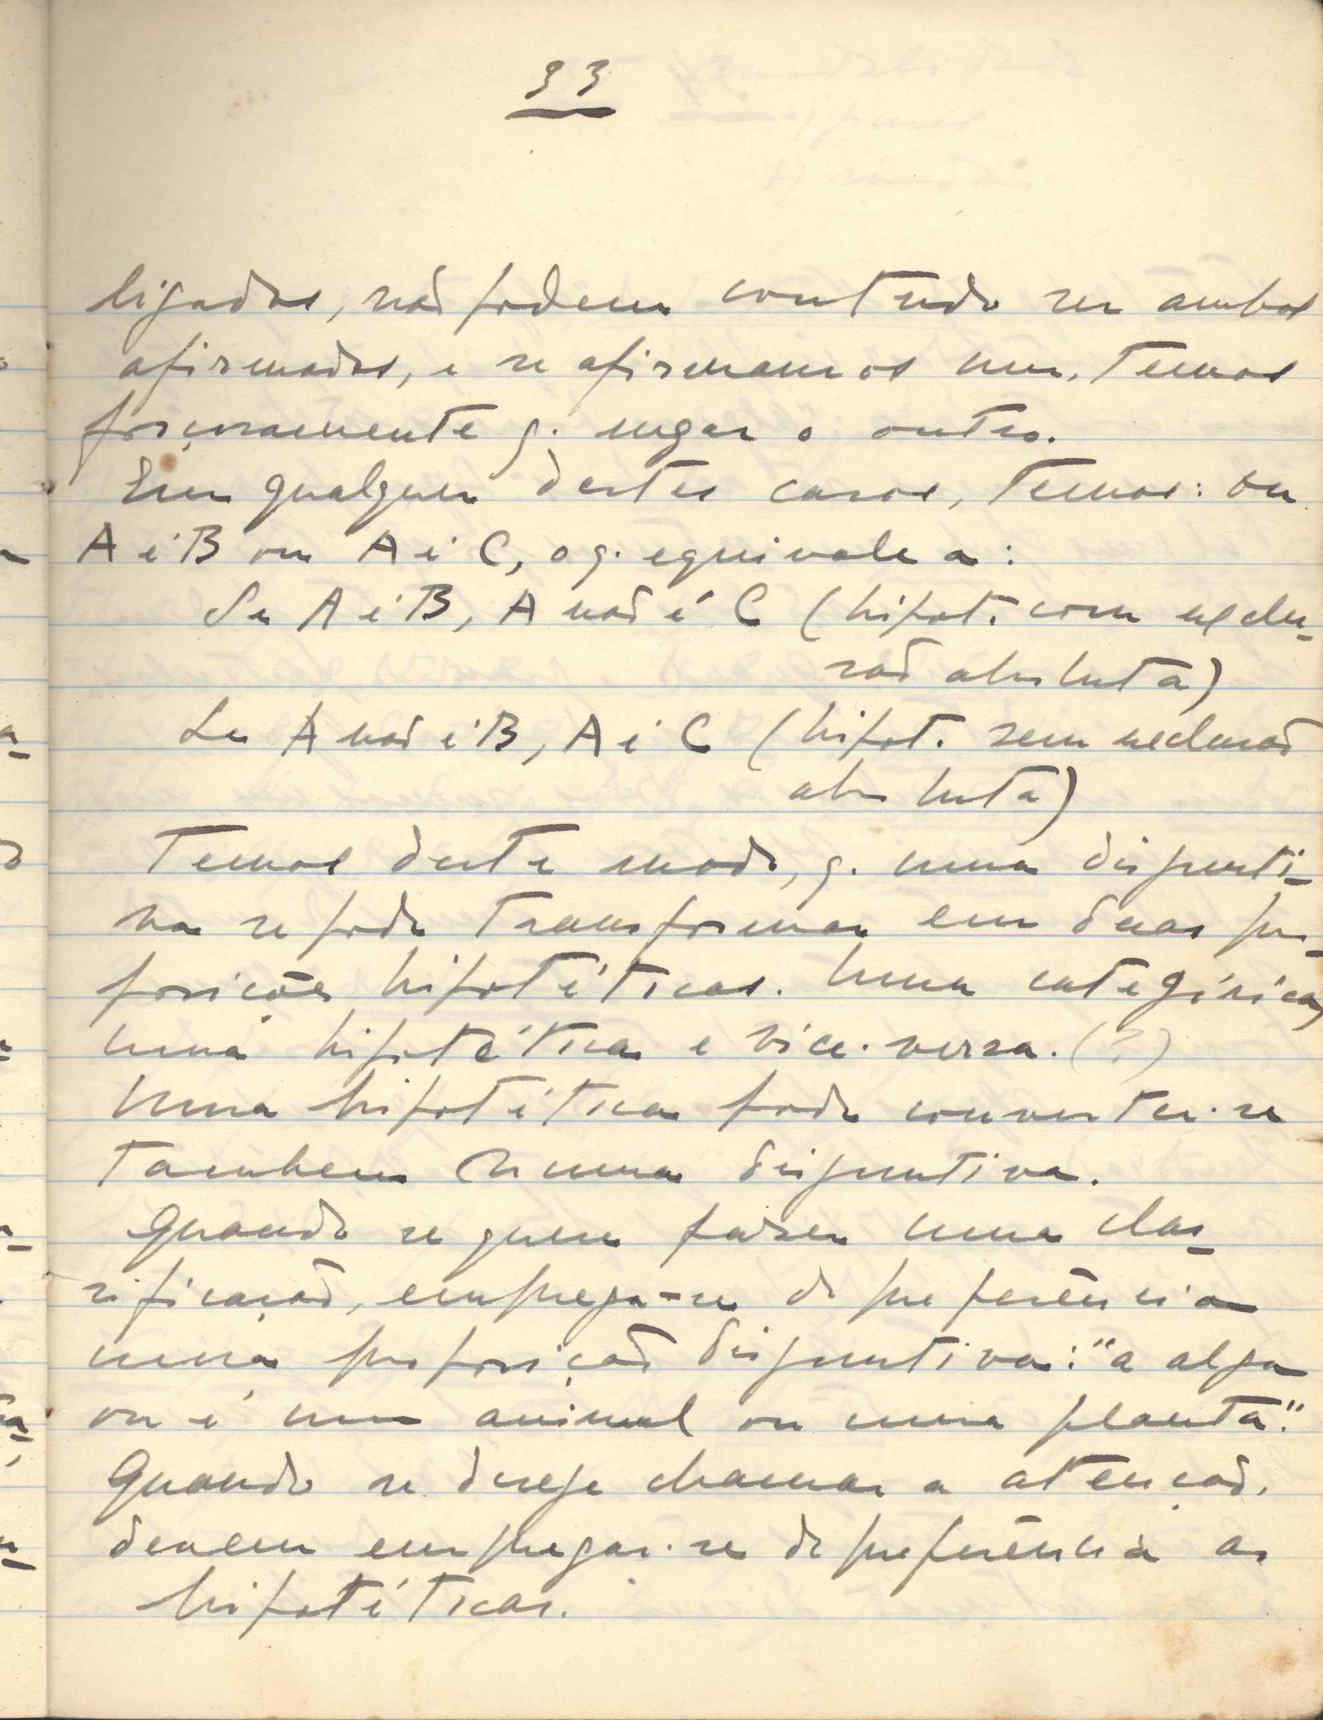 33
ligados, não podem contudo ser ambos
afirmados, e se afirmamos um, temos
forçosamente q. negar o outro.
Em qualquer destes casos, temos: ou
A é B ou A é C, o q. equivale a:
Se A é B, A não é C (hipot. com exclu-
são absluta)
Se A não é B, A é C (hipot. sem exclusão
absluta)
Temos deste modo, q. uma disjunti-
va se pode transformar em duas pro-
posições hipotéticas. Uma categórica,
numa hipotética e vice-versa. (?)
Uma hipotética pode converter-se
tambem numa disjuntiva.
Quando se quere fazer uma clas-
sificação, emprega-se de preferência
uma proposição disjuntiva: "a alga
ou é um animal ou uma planta."
Quando se deseja chamar a atenção,
devem empregar-se de preferência as
hipotéticas.